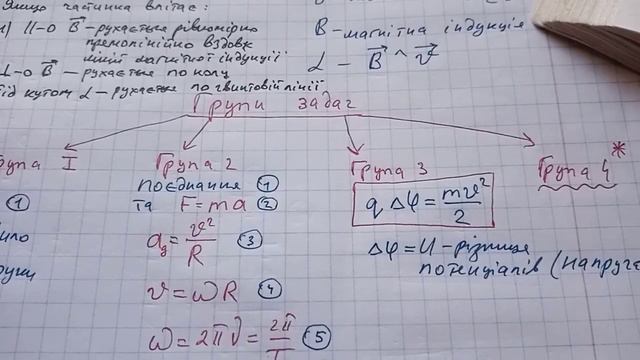 Якщо частинка влітає:
1) ||-о B⃗ - рухається рівномірно
прямолінійно вздовж
ліній магнітної індукції
⊥-о B⃗ - рухається по колу
під кутом α - рухається по гвинтовій лінії
B - магнітна індукція
α - B⃗ ^ v⃗
Групи задач
група I
Група 2
Група 3
Група 4 *
①
поєднання ①
та F = ma ②
a_д = v²/R ③
v = ωR ④
ω = 2πν = 2π/T ⑤
q Δφ = mv²/2
Δφ = U - різниця
потенціалів (напруга